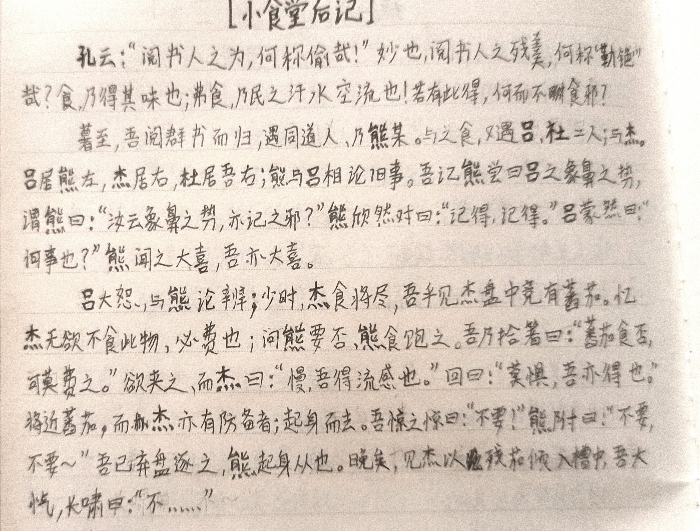 [小食堂后记]
孔云：“阅书人之为，何称偷哉！”妙也，阅书人之残羹，何称“勤俭”
哉？食，乃得其味也；弗食，乃民之汗水空流也！若有此得，何而不食邪？
暮至，吾阅群书而归，遇同道人、乃熊某。与之食，又遇吕、杜二人；与杰。
吕居熊左，杰居右，杜居吾右；熊与吕相论旧事。吾记熊尝曰吕之象鼻之势，
谓熊曰：“汝云象鼻之势，亦记之邪？”熊欣然对曰：“记得，记得。”吕蒙然曰：“
何事也？”熊闻之大喜，吾亦大喜。
吕大怒、与熊论辩；少时，杰食将尽，吾乎见杰盘中竟有蕃茄。忆
杰无欲不食此物，必费也；问熊要否、熊食饱之。吾乃拾箸曰：“蕃茄食否，
可莫费之。”欲夹之、而杰曰：“慢，吾得流感也。”回曰：“莫惧，吾亦得也。”
将近蕃茄，而杰亦有防备者；起身而去。吾惊之惊曰：“不要！”熊附曰：“不要，
不要~”吾已弃盘逐之，熊起身从也。晚矣，见杰以残茄倾入槽中，吾大
气，长啸曰：“不……”